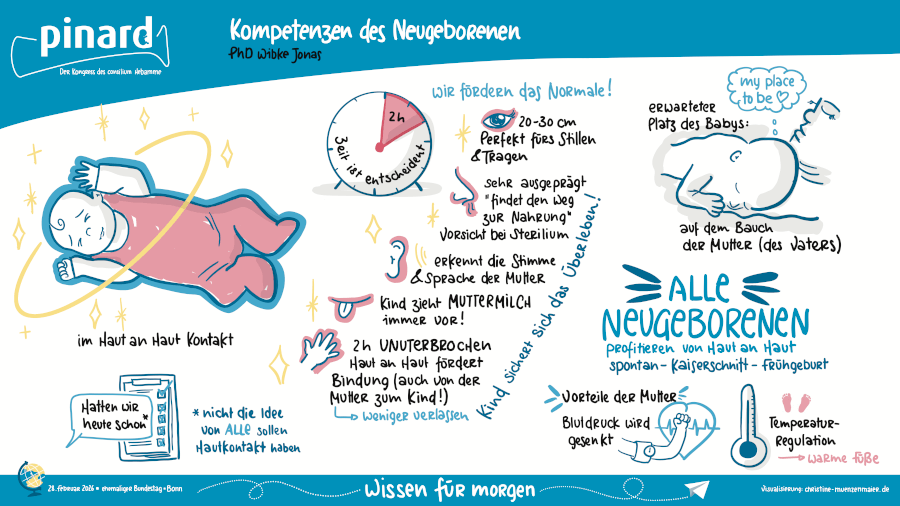 pinard
Der Kongress des consilium Hebamme
Kompetenzen des Neugeborenen
PhD Wibke Jonas
im Haut an Haut Kontakt
Hatten wir
heute schon*
*nicht die Idee
von ALLE sollen
Hautkontakt haben
wir fördern das Normale!
2h
Zeit ist entscheidend
20-30 cm
Perfekt fürs Stillen
& Tragen
sehr ausgeprägt
"findet den Weg
zur Nahrung"
Vorsicht bei Sterilium
erkennt die Stimme
& Sprache der Mutter
Kind zieht MUTTERMILCH
immer vor!
2h UNUTERBROCHEN
Haut an Haut fördert
Bindung (auch von der
Mutter zum Kind!)
weniger verlassen
Kind sichert sich das Überleben!
my place
to be
erwarteter
Platz des Babys:
auf dem Bauch
der Mutter (des Vaters)
ALLE
NEUGEBORENEN
profitieren von Haut an Haut
spontan - Kaiserschnitt - Frühgeburt
Vorteile der Mutter
Blutdruck wird
gesenkt
Temperatur-
Regulation
warme Füße
28. Februar 2026 • ehemaliger Bundestag • Bonn
Wissen für morgen
Visualisierung: christine-muenzenmaier.de